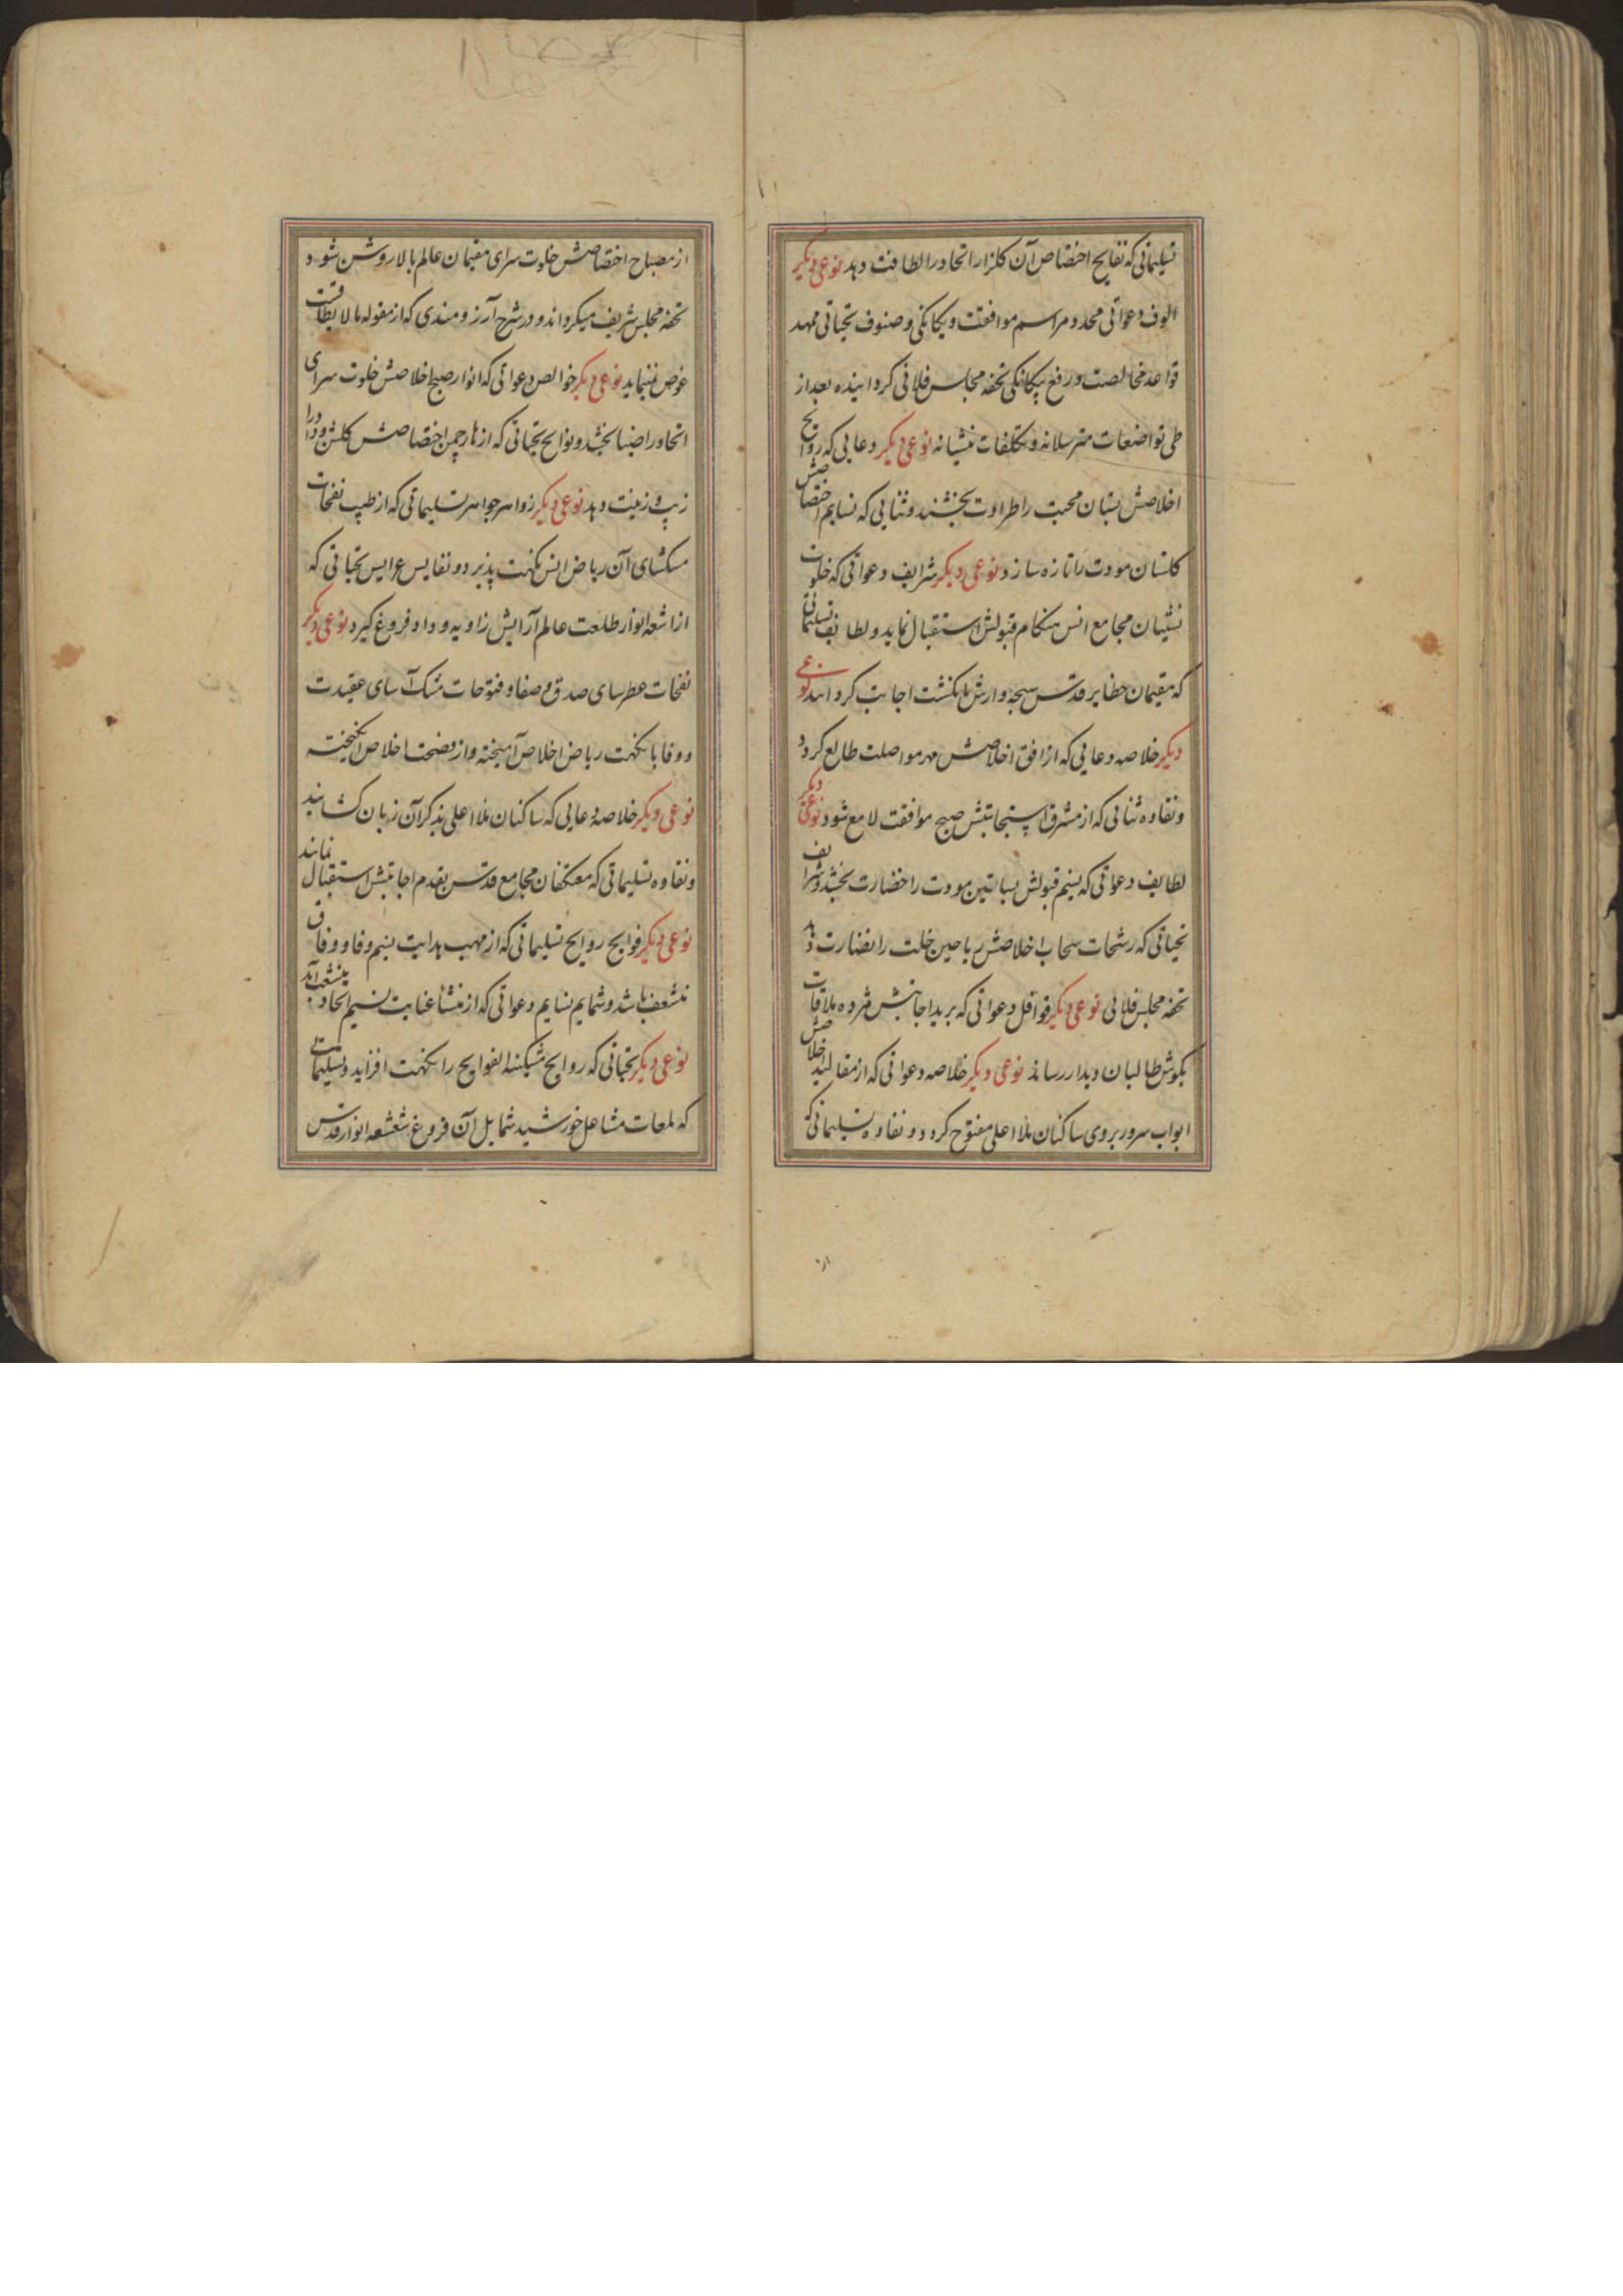 تسلیماتی که نفایح اختصاص آن کلزار اتحاد را لطافت دهد نوعی دیکر
الوف دعواتی محدد مراسم موافقت و یکانکی و صنوف تحیاتی ممهد
قواعد مخالصت و رفع بیکانکی تحفه مجلس فلانی کردانیده بعد از
طی تواضعات مترسلانه و تکلفات منشیانه نوعی دیکر دعایی که روایح
اخلاصش بستان محبت را طراوت بخشند و ثنایی که نسایم اختصاصش
کلستان مودت را تازه سازد نوعی دیکر شرایف دعواتی که خلوت
نشینان مجامع انس هنکام قبولش استقبال نماید و لطایف تسلیماتی
که مقیمان حظایر قدس سبحه وارش بانکشت اجابت کردانند نوعی
دیکر خلاصه دعایی که از افق اخلاصش مهر مواصلت طالع کردد
و نقاوه ثنائی که از مشرق استجابتش صبح موافقت لامع شود نوعی دیکر
لطایف دعواتی که نسیم قبولش بساتین مودت را خضارت بخشد و شرایف
تحیاتی که رشحات سحاب اخلاصش ریاحین خلت را نضارت دهد
تحفه مجلس فلانی نوعی دیکر قوافل دعواتی که برید اجابتش مژده ملاقات
بکوش طالبان دیدار رساند نوعی دیکر خلاصه دعواتی که از مقالید اخلاصش
ابواب سرور بروی ساکنان ملاء اعلی مفتوح کردد و نقاوه تسلیماتی که
از مصباح اختصاصش خلوت سرای مقیمان عالم بالا روشن شود
تحفه مجلس شریف میکرداند و در شرح آرزومندی که از مقوله مالایطاقست
خوض نمینماید نوعی دیکر خوالص دعواتی که انوار صبح اخلاصش خلوت سرای
اتحاد را ضیا بخشد و نوایح تحیاتی که ازهار چمن اختصاصش کلشن وداد را
زیب و زینت دهد نوعی دیکر زواهر جواهر تسلیماتی که از طیب نفحات
مسکشای آن ریاض انس نکهت پذیرد و نفایس عرایس تحیاتی که
از اشعه انوار طلعت عالم آرایش زاویه وداد فروغ کیرد نوعی دیکر
نفحات عطرسای صدق و صفا و فتوحات مشک آسای عقیدت
و وفا با نکهت ریاض اخلاص آمیخته و از اختصاص انکیخته
نوعی دیکر خلاصهٔ دعایی که ساکنان ملاء اعلی بذکر آن زبان کشایند
و نقاوه تسلیماتی که معتکفان مجامع قدس بقدم اجابتش استقبال نمایند
نوعی دیکر فوایح روایح تسلیماتی که از مهب هدایت نسیم وفا و وفاق
باشد و شمایم نسایم دعواتی که از منشأ عنایت نسیم اتحاد
نوعی دیکر تحیاتی که روایح مشکینة الفوایح را نکهت افزاید و تسلیماتی
که لمعات مشاعل خورشید شمایل آن فروغ شعشعه انوار قدس